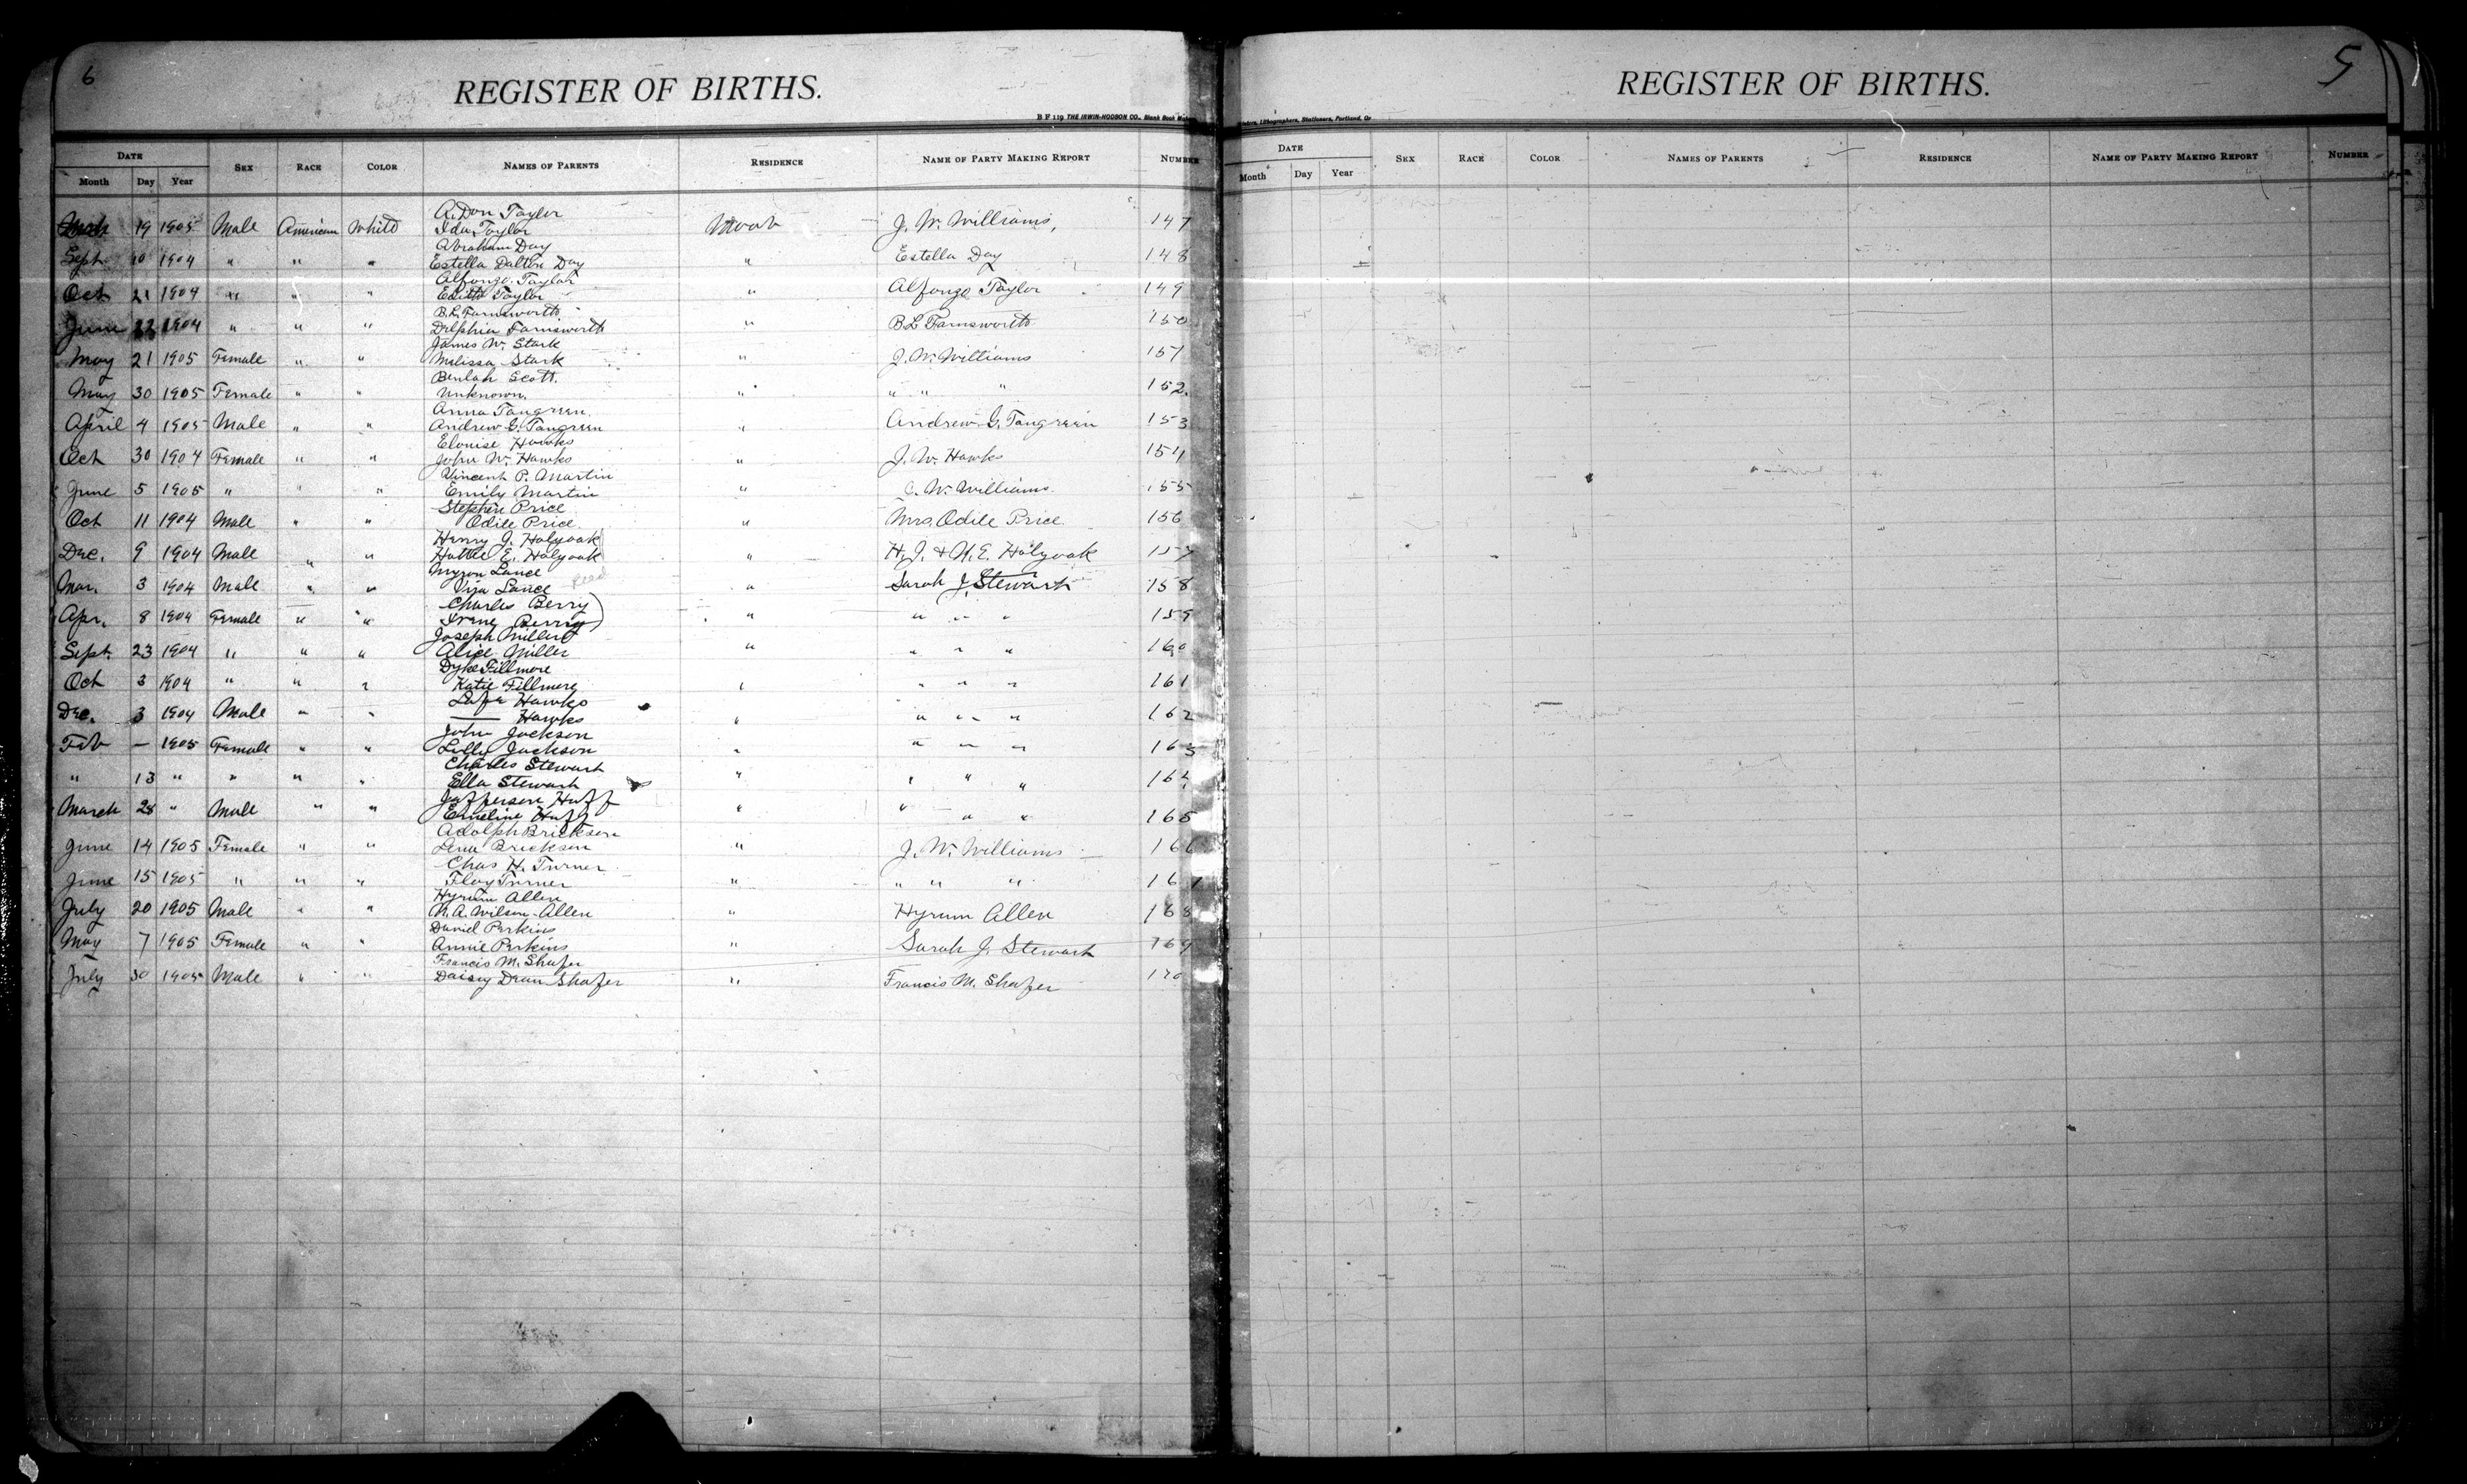 6
REGISTER OF BIRTHS.
B F 119 THE IRWIN-HODSON CO., Blank Book
DATE SEX RACE COLOR NAMES OF PARENTS RESIDENCE NAME OF PARTY MAKING REPORT NUMBER
Month Day Year
A. Don Taylor
19 1905 Male American White Ida Taylor Moab J. W. Williams, 147
Abraham Day
Sept 10 1904 " " " Estella Dalton Day " Estella Day 148
Alfonzo Taylor
Oct 21 1904 " " " Edith Taylor " Alfonzo Taylor 149
B. L. Farnsworth
June 22 1904 " " " Delphia Farnsworth " B L Farnsworth 150
James W. Stark
May 21 1905 Female " " Melissa Stark " J. W. Williams 151
Beulah Scott.
May 30 1905 Female " " Unknown. " " " " 152.
Anna Tangreen.
April 4 1905 Male " " Andrew G. Tangreen " Andrew G. Tangreen 153
Elouise Hawks
Oct 30 1904 Female " " John W. Hawks " J. W. Hawks 154
Vincent P. Martin
June 5 1905 " " " Emily Martin " W. Williams. 155
Stephen Price
Oct 11 1904 Male " " Odile Price " Mrs. Odile Price 156
Henry J. Holyoak
Dec. 9 1904 Male " " Hattie E. Holyoak " H. J. & H. E. Holyoak 157
Myron Lance
Mar. 3 1904 Male " " Vija Lance Reed " Sarah J. Stewart 158
Charles Berry
Apr. 8 1904 Female " " Irene Berry " " " " 159
Joseph Miller
Sept. 23 1904 " " " Alice Miller " " " " 160
Dyke Fillmore
Oct 3 1904 " " " Katie Fillmore " " " " 161
Lafe Hawks
Dec. 3 1904 Male " " — Hawks " " " " 162
John Jackson
Feb — 1905 Female " " Lilly Jackson " " " " 163
Charles Stewart
" 13 " " " " Ella Stewart " " " " 164
Jefferson Huff
March 28 " Male " " Emeline Huff " " " " 165
Adolph Brickson
June 14 1905 Female " " Lena Brickson " J. W. Williams 166
Chas H. Turner
June 15 1905 " " " Floy Turner " " " " 167
Hyrum Allen
July 20 1905 Male " " N. A. Wilson Allen " Hyrum Allen 168
Daniel Perkins
May 7 1905 Female " " Annie Perkins " Sarah J. Stewart 169
Francis M. Shafer
July 30 1905 Male " " Daisy Dean Shafer " Francis M. Shafer 170
5
REGISTER OF BIRTHS.
Lithographers, Stationers, Portland, Or
DATE SEX RACE COLOR NAMES OF PARENTS RESIDENCE NAME OF PARTY MAKING REPORT NUMBER
Month Day Year